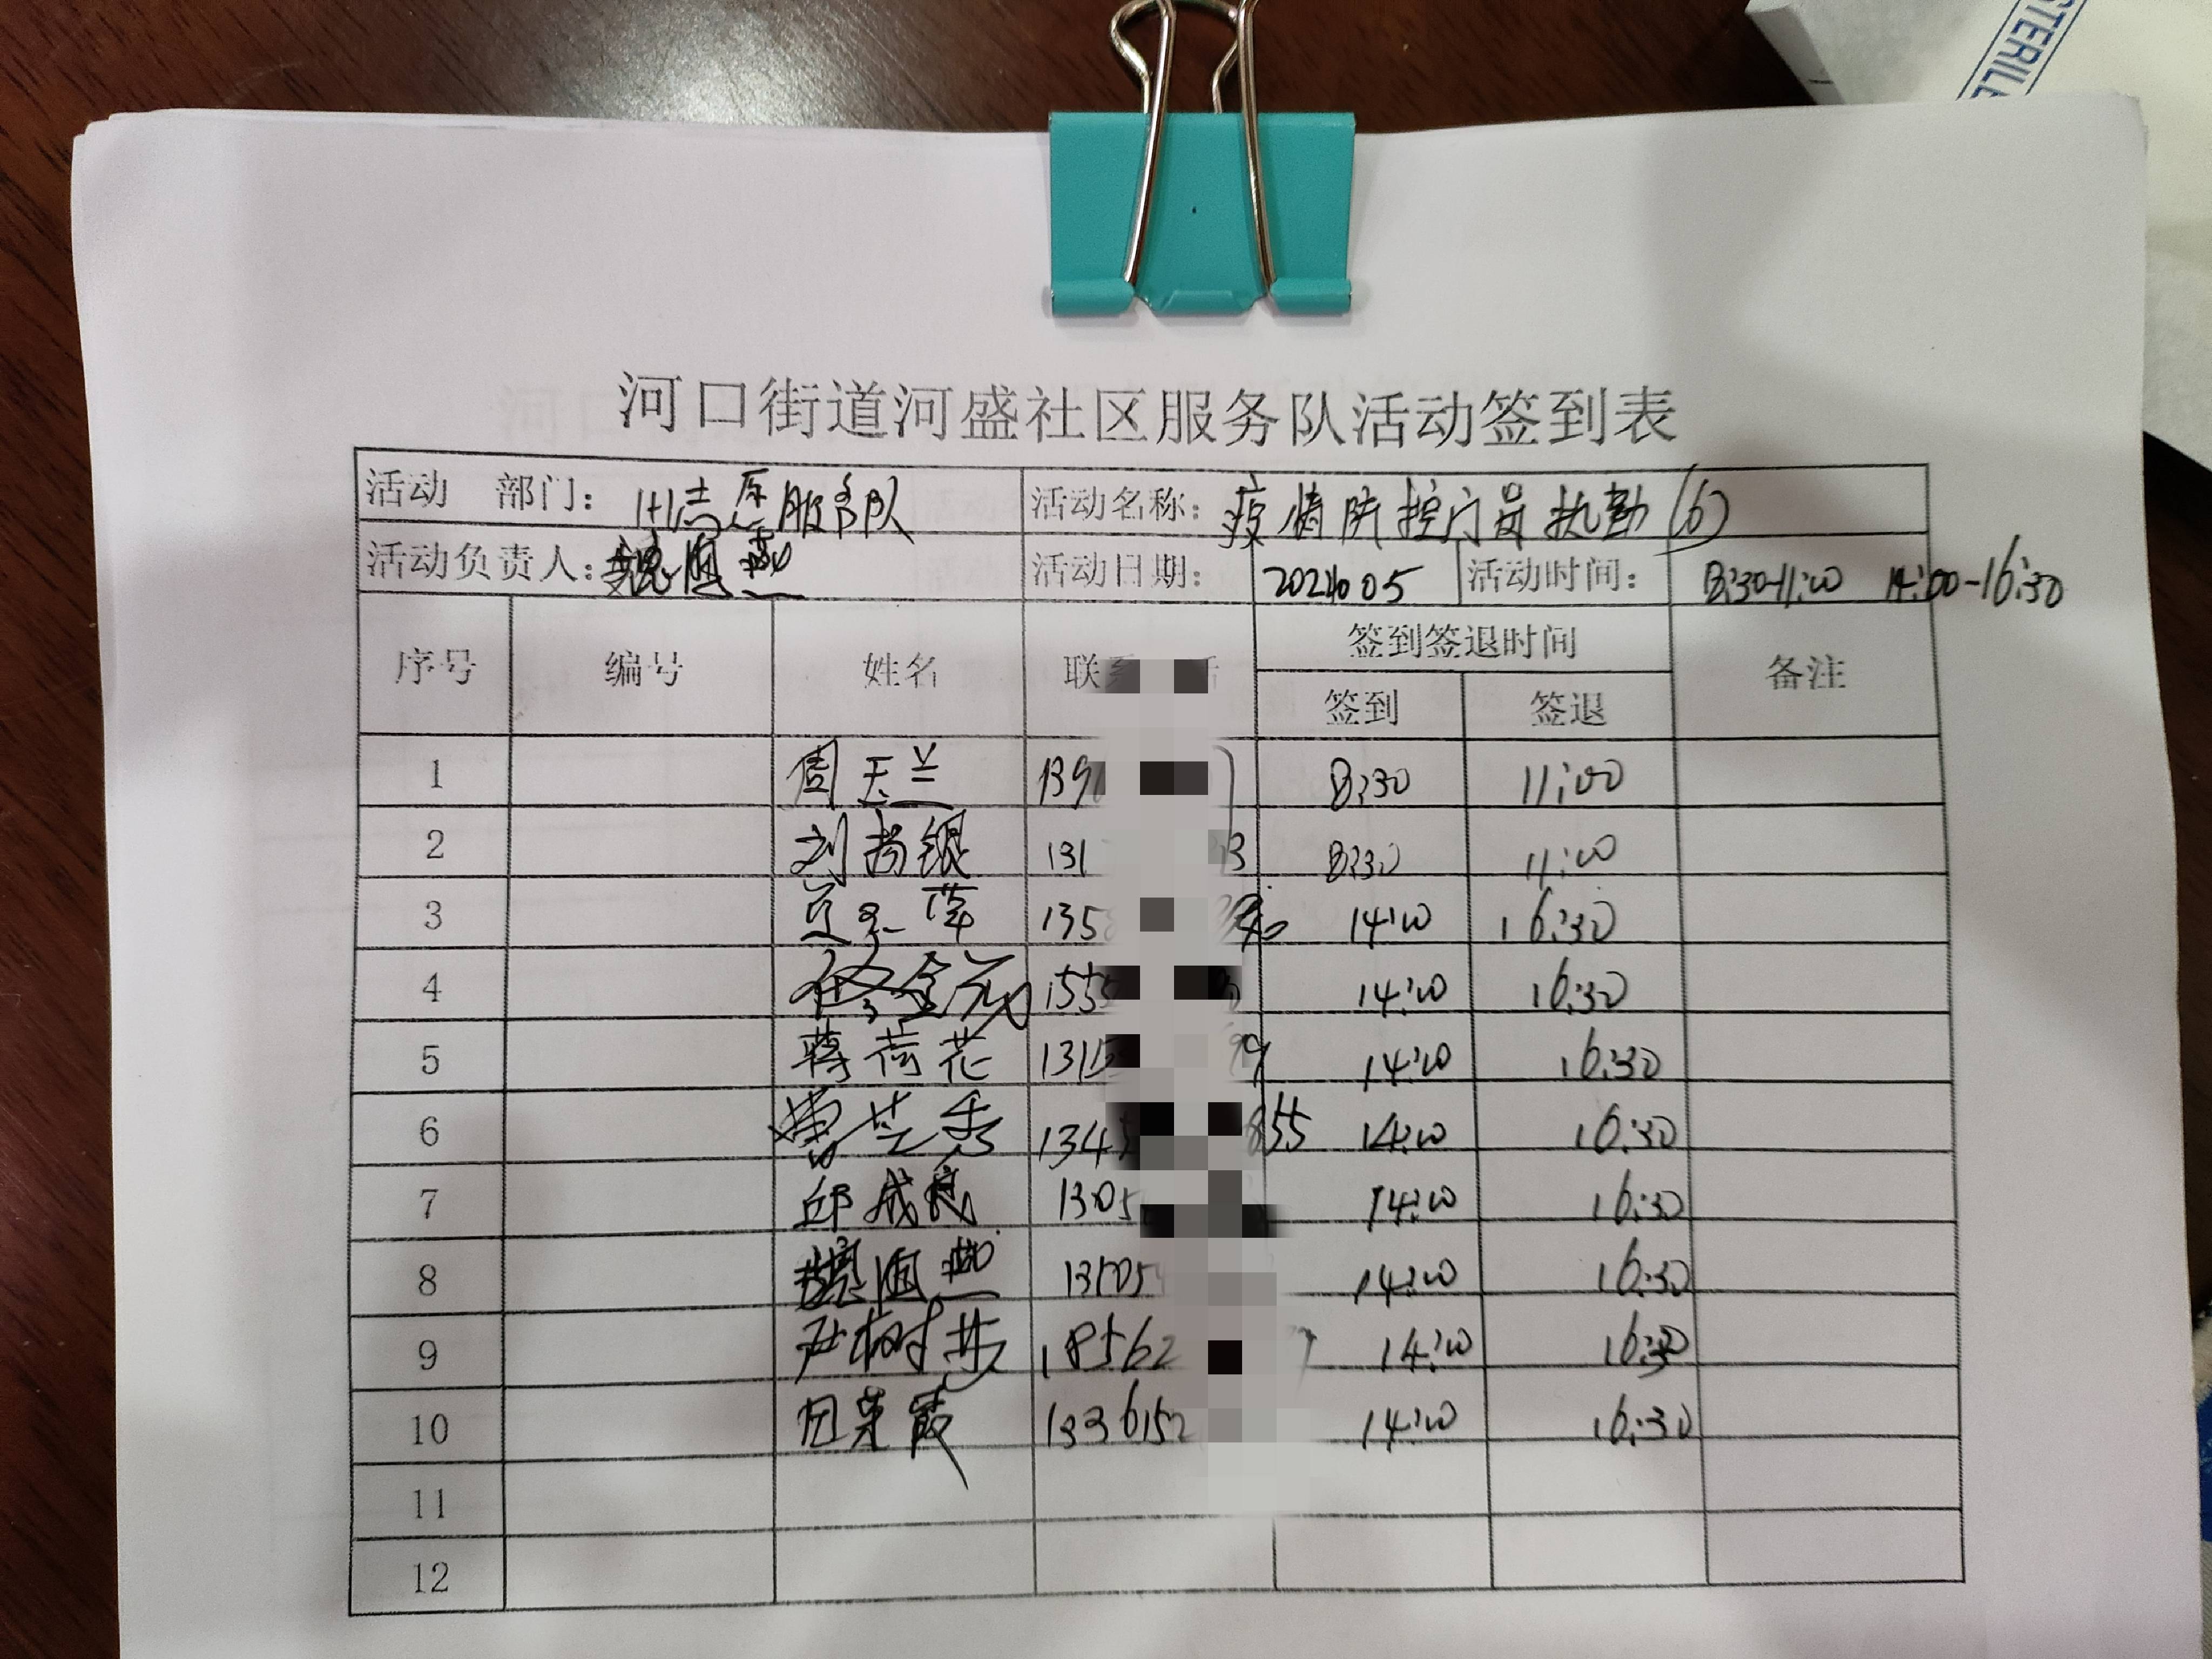 STERIL
河口街道河盛社区服务队活动签到表
活动 部门： 志愿服务队 活动名称： 疫情防控门岗执勤(6)
活动负责人： 活动日期： 活动时间： 8:30-11:00 14:00-16:30
序号 编号 姓名 联 签到签退时间 备注
签到 签退
1 周玉兰 139 8:30 11:00
2 刘尚银 131 3 8:30 11:00
3 135 14:00 16:30
4 155 14:00 16:30
5 蒋荷花 131 99 14:00 16:30
6 曹芝秀 134 855 14:00 16:30
7 邱成良 1305 14:00 16:30
8 14:00 16:30
9 尹树 18562 14:00 16:30
10 田荣霞 1336152 14:00 16:30
11
12